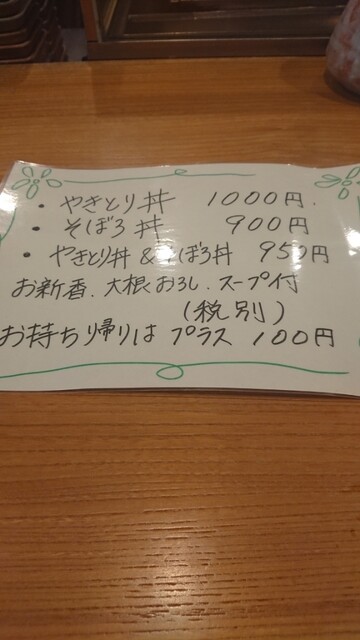 ・やきとり丼 1000円.
・そぼろ丼 900円
・やきとり丼&そぼろ丼 950円
お新香、大根おろし、スープ付
(税別)
お持ち帰りは プラス 100円